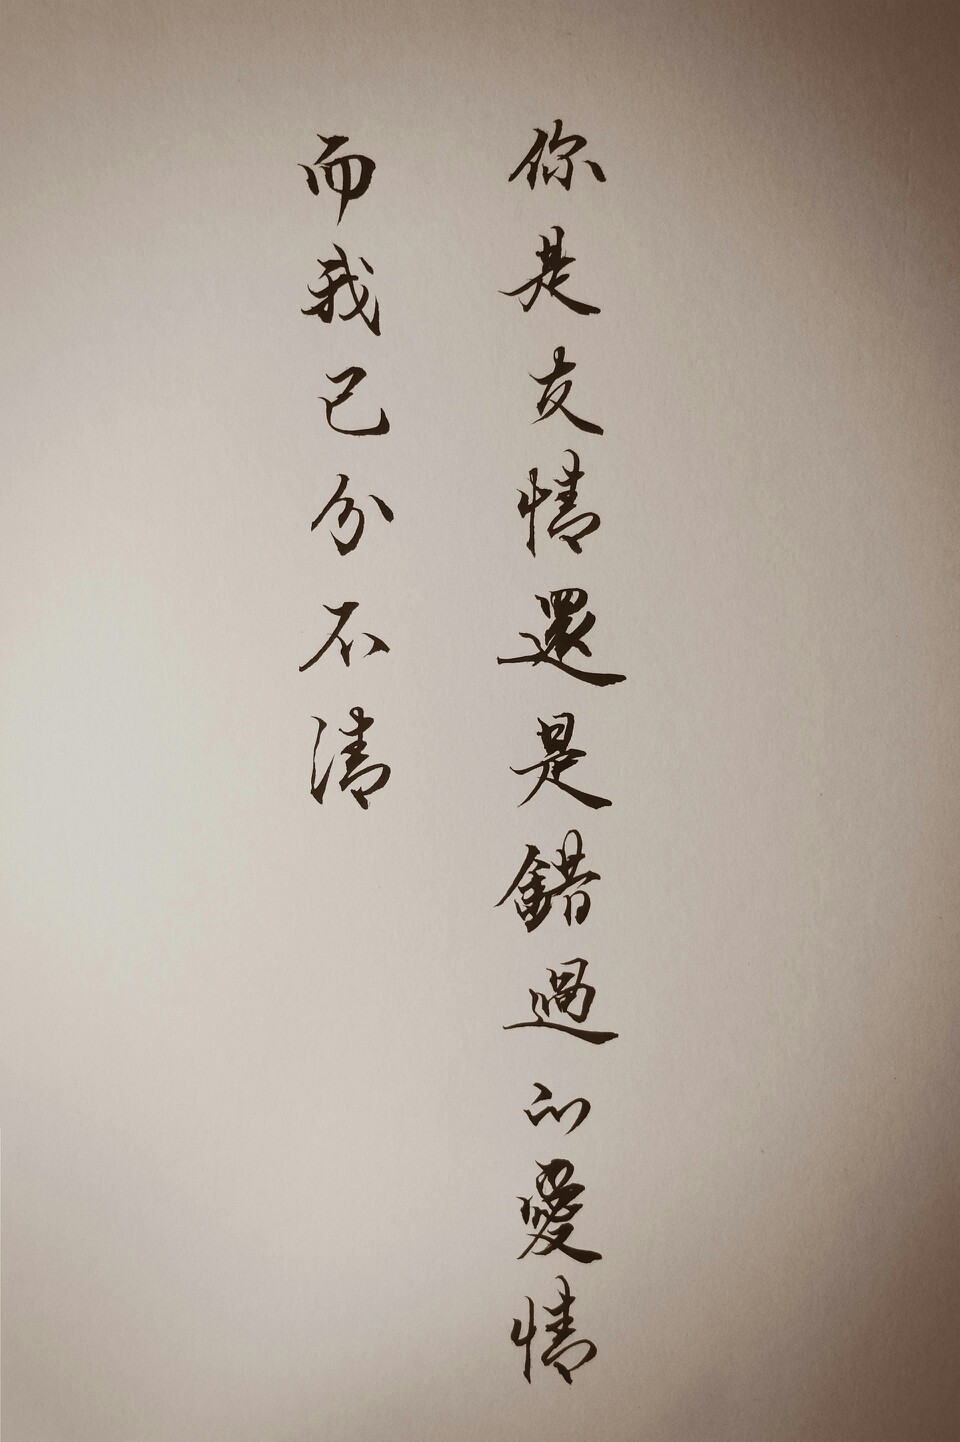 你是友情還是錯過的愛情
而我已分不清